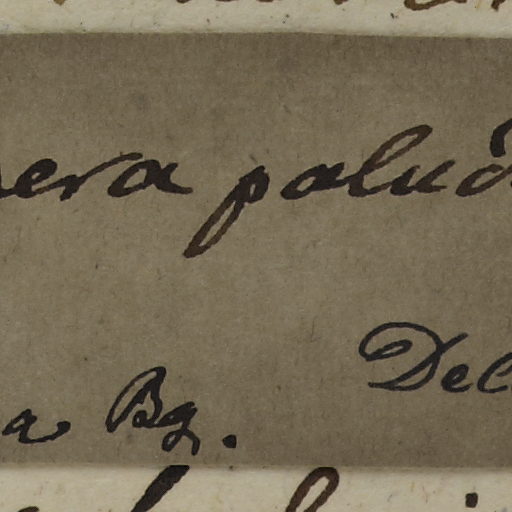 era palud
Del
a Bg.